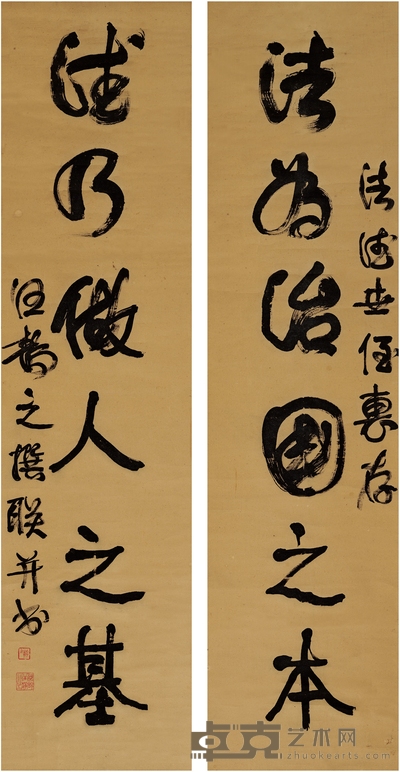 法为治国之本
法德世侄惠存
德乃做人之基
汪鞫之撰联并书
卓克艺术网
zhuokearts.com